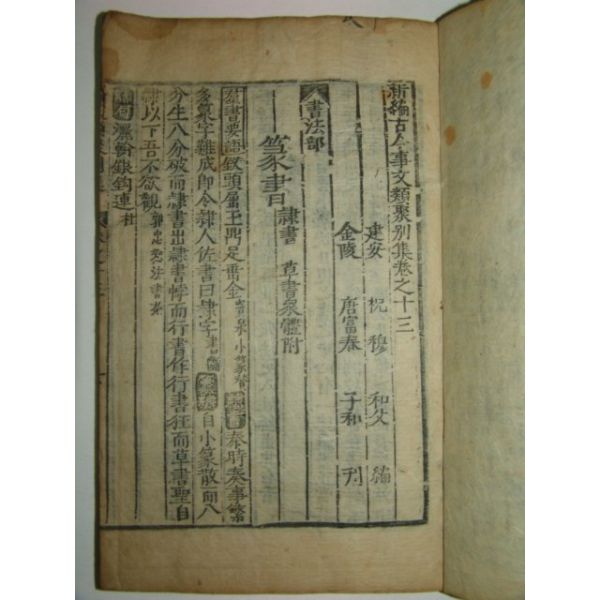 新編古今事文類聚別集卷之十三
建安 祝穆 和父 編
金陵 唐富春 子和 刊
書法部
篆書 隸書 草書衆體附
羣書要語釵頭屈玉鼎足垂金 奉時奏事繁
多篆字難成即令隸人佐書曰隸字 自小篆散而八
分生八分破而隸書出隸書悖而行書作行書狂而草書聖自
隸以下吾不欲觀
濡翰銀鉤連 杜